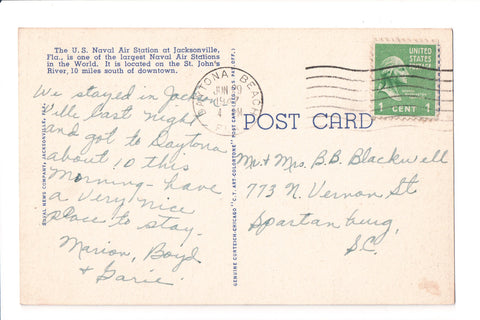 The U.S. Naval Air Station at Jacksonville,
Fla., is one of the largest Naval Air Stations
in the World. It is located on the St. John's
River, 10 miles south of downtown.
We stayed in Jackson
ville last night
and got to Daytona
about 10 this
morning - have
a very nice
place to stay.
Marion, Boyd
+ Garie.
DAYTONA BEACH
JUN
4
FLA
UNITED
STATES
1 CENT 1
POST CARD
Mr. + Mrs. B.B. Blackwell
773 N. Vernon St
Spartanburg,
S.C.
NEWS COMPANY, JACKSONVILLE, FLA.
GENUINE CURTEICH-CHICAGO "C.T. ART-COLORTONE" POST CARD (REG. U.S. PAT. OFF.)